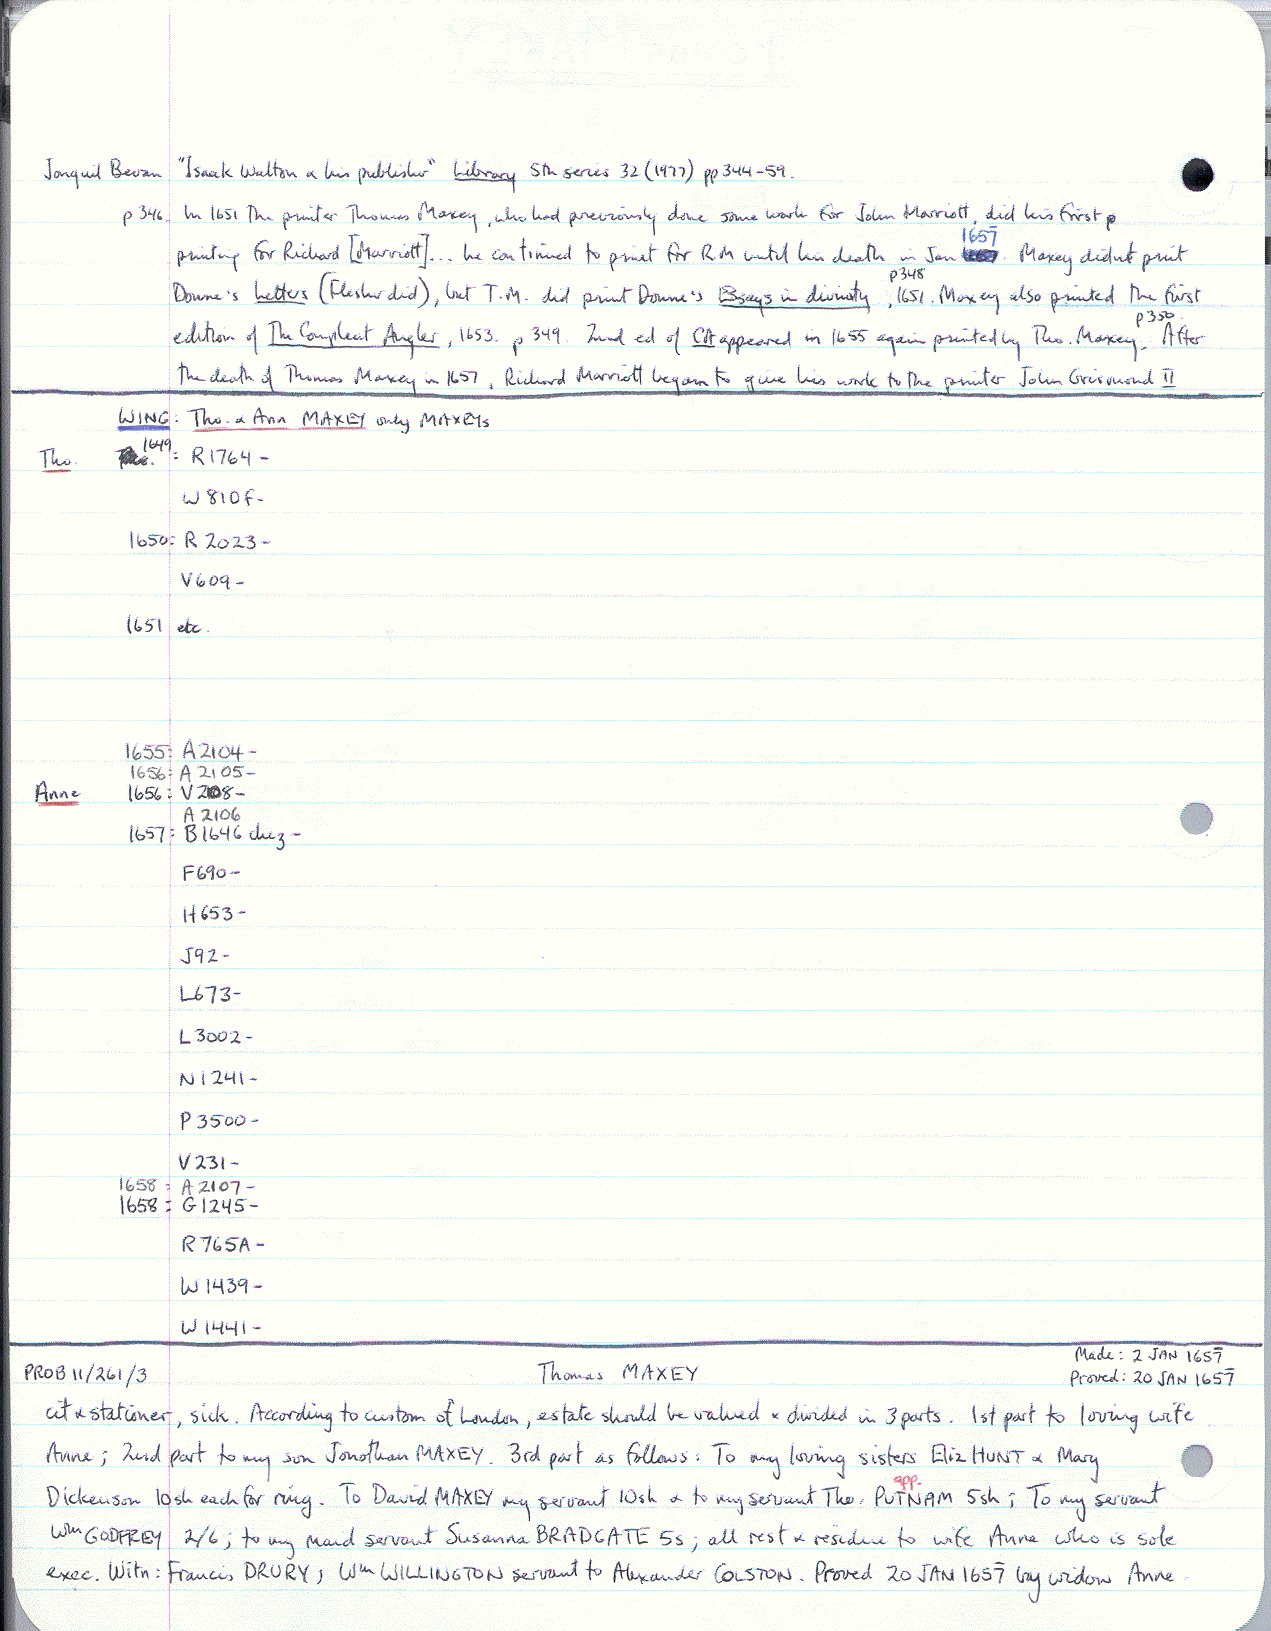 Jonquil Bevan "Isaak Walton & his publisher" Library 5th series 32 (1977) pp 344-59.
p 346. In 1651 the printer Thomas Maxey, who had previously done some work for John Marriott, did his first p
printing for Richard [Marriott]... he continued to print for R.M until his death in Jan 1657. Maxey didn't print
Donne's Letters (Flesher did), but T.M. did print Donne's Essays in divinity, p348 1651. Maxey also printed the first
edition of The Compleat Angler, 1653. p 349. 2nd ed of CA appeared in 1655 again printed by Tho. Maxey. p350. After
the death of Thomas Maxey in 1657, Richard Marriott began to give his work to the printer John Grismond II
WING: Tho. & Ann MAXEY only MAXEYs
Tho. 1649: R1764-
W810f-
1650: R2023-
V609-
1651 etc.
1655: A2104-
1656: A2105-
Anne 1656: V208-
A2106
1657: B1646 chez-
F690-
H653-
J92-
L673-
L3002-
N1241-
P3500-
V231-
1658: A2107-
1658: G1245-
R765A-
W1439-
W1441-
PROB 11/261/3 Thomas MAXEY Made: 2 JAN 1657
Proved: 20 JAN 1657
cit & stationer, sick. According to custom of London, estate should be valued & divided in 3 parts. 1st part to loving wife
Anne; 2nd part to my son Jonathan MAXEY. 3rd part as follows: To my loving sisters Eliz HUNT & Mary
Dickenson 10sh each for ring. To David MAXEY my servant 10sh & to my servant Tho. PUTNAM app. 5sh; To my servant
Wm GODFREY 2/6; to my maid servant Susanna BRADGATE 5s; all rest & residue to wife Anne who is sole
exec. Witn: Francis DRURY; Wm WILLINGTON servant to Alexander COLSTON. Proved 20 JAN 1657 by widow Anne